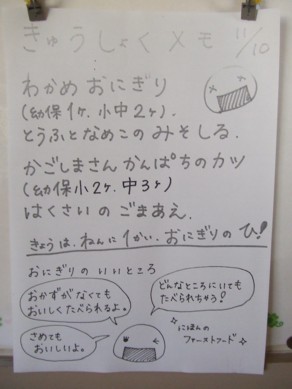 きゅうしょくメモ 11/10
わかめおにぎり
(幼保1ヶ.小中2ヶ).
とうふとなめこのみそしる.
かごしまさんかんぱちのカツ
(幼保小2ヶ.中3ヶ)
はくさいのごまあえ.
きょうは、ねんに1かい、おにぎりのひ!
おにぎりのいいところ
おかずがなくても
おいしくたべられるよ。
どんなところにいても
たべられちゃう!
さめても
おいしいよ。
にほんの
ファーストフード